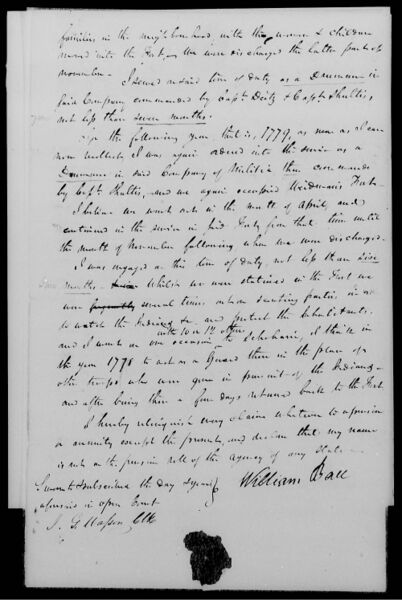 families in the neighborhood with their women & children
moved into the Fort, & we were discharged the latter part of
november.
I served in said time of duty as a Drummer in
said Company commanded by Capt. Deitz & Capt. Shultis,
not less than seven months.
In the following year that is, 1779, as near as I can
now recollect, I was again ordered into the service as a
Drummer in said Company of Militia then commanded
by Capt. Shultis, and we again occupied Weidman's Fort.
I believe we went out in the month of April, and
continued in the service in said Fort, from that time until
the month of November following when we were discharged.
I was engaged in this time of duty, not less than
months. Whilst we were stationed in the Fort we
were frequently several times, out on scouting parties, in order
to watch the Indians &c and protect the inhabitants.
with 10 or 12 others
and I went on one occasion to Schoharie, I think in
the year 1778 to act as a Guard there in the place of
other troops who were gone in pursuit of the Indians,
and after being there a few days returned back to the Fort.
I hereby relinquish every claim whatever to a pension
or annuity except the present, and declare that my name
is not on the pension roll of the agency of any state.
Sworn to & subscribed the day & year
aforesaid in open Court
William Ball
Clk